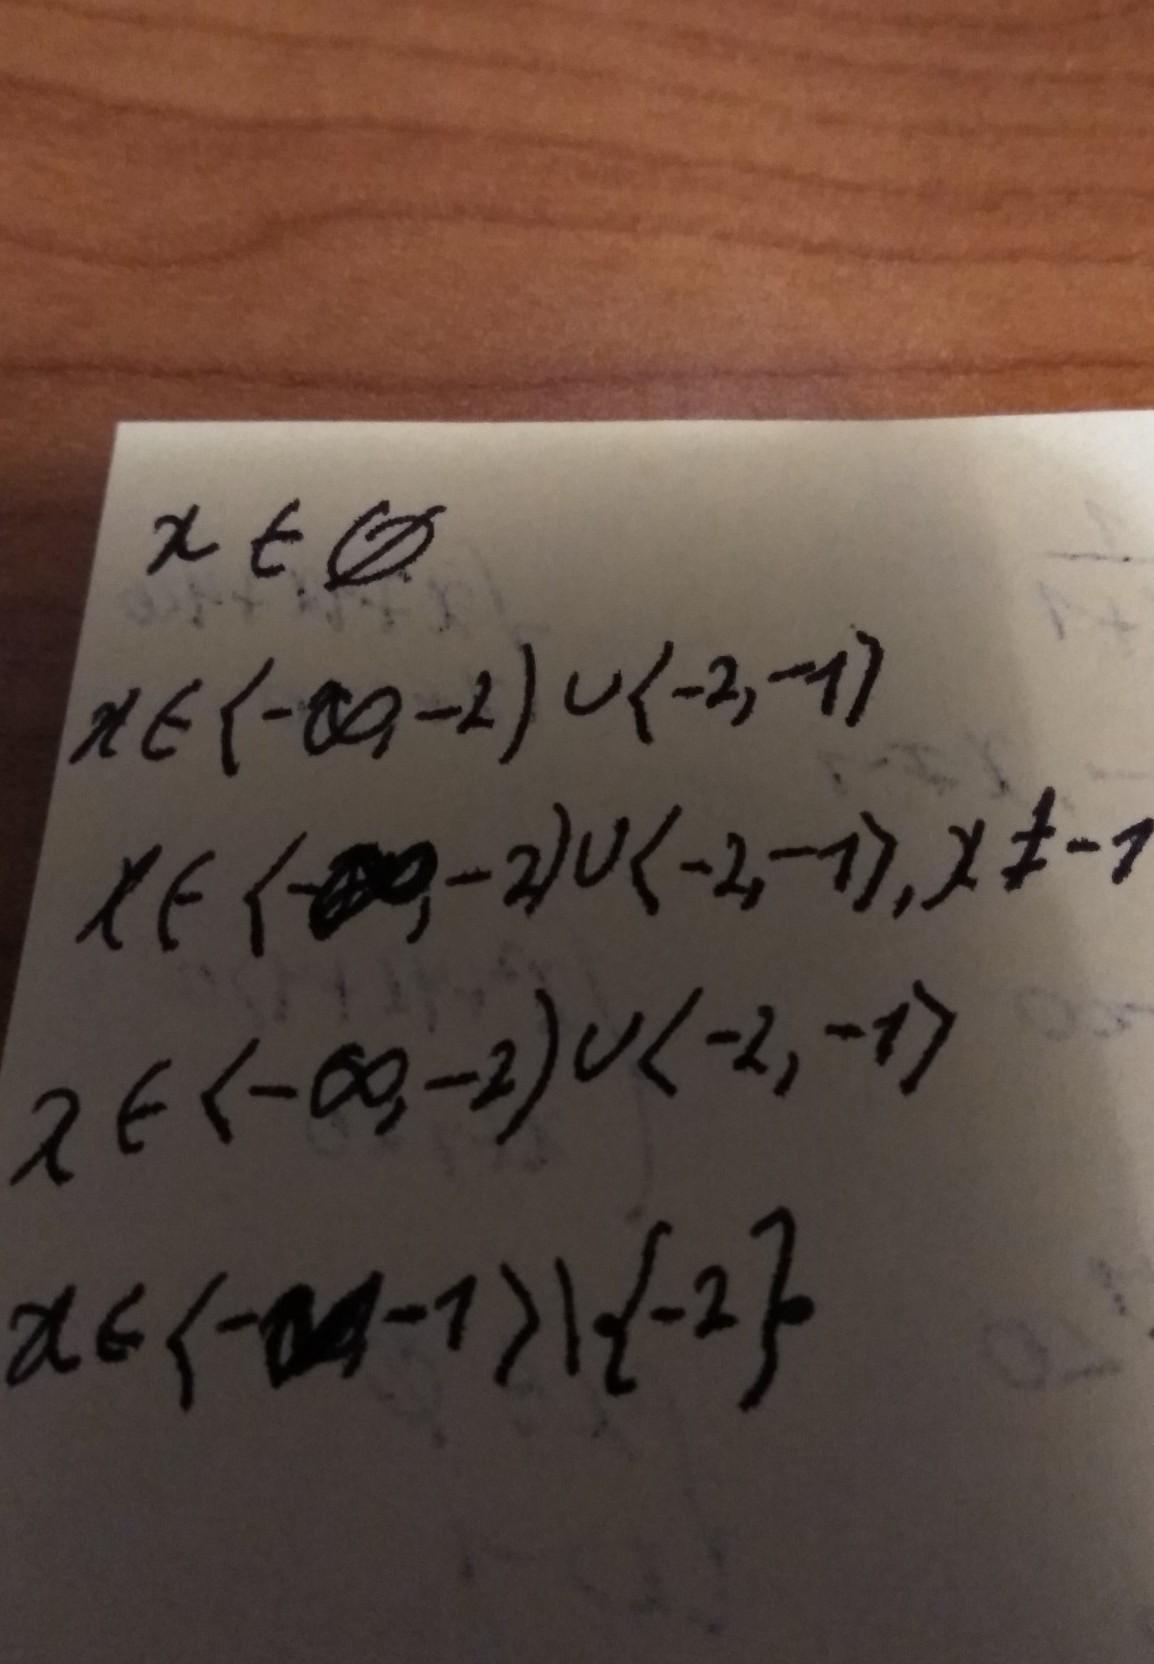 x ∈ ∅
x ∈ ⟨-∞, -2) ∪ ⟨-2, -1⟩
x ∈ ⟨-∞, -2) ∪ ⟨-2, -1⟩, x ≠ -1
x ∈ ⟨-∞, -2) ∪ ⟨-2, -1⟩
x ∈ ⟨-∞, -1⟩ \ {-2}.